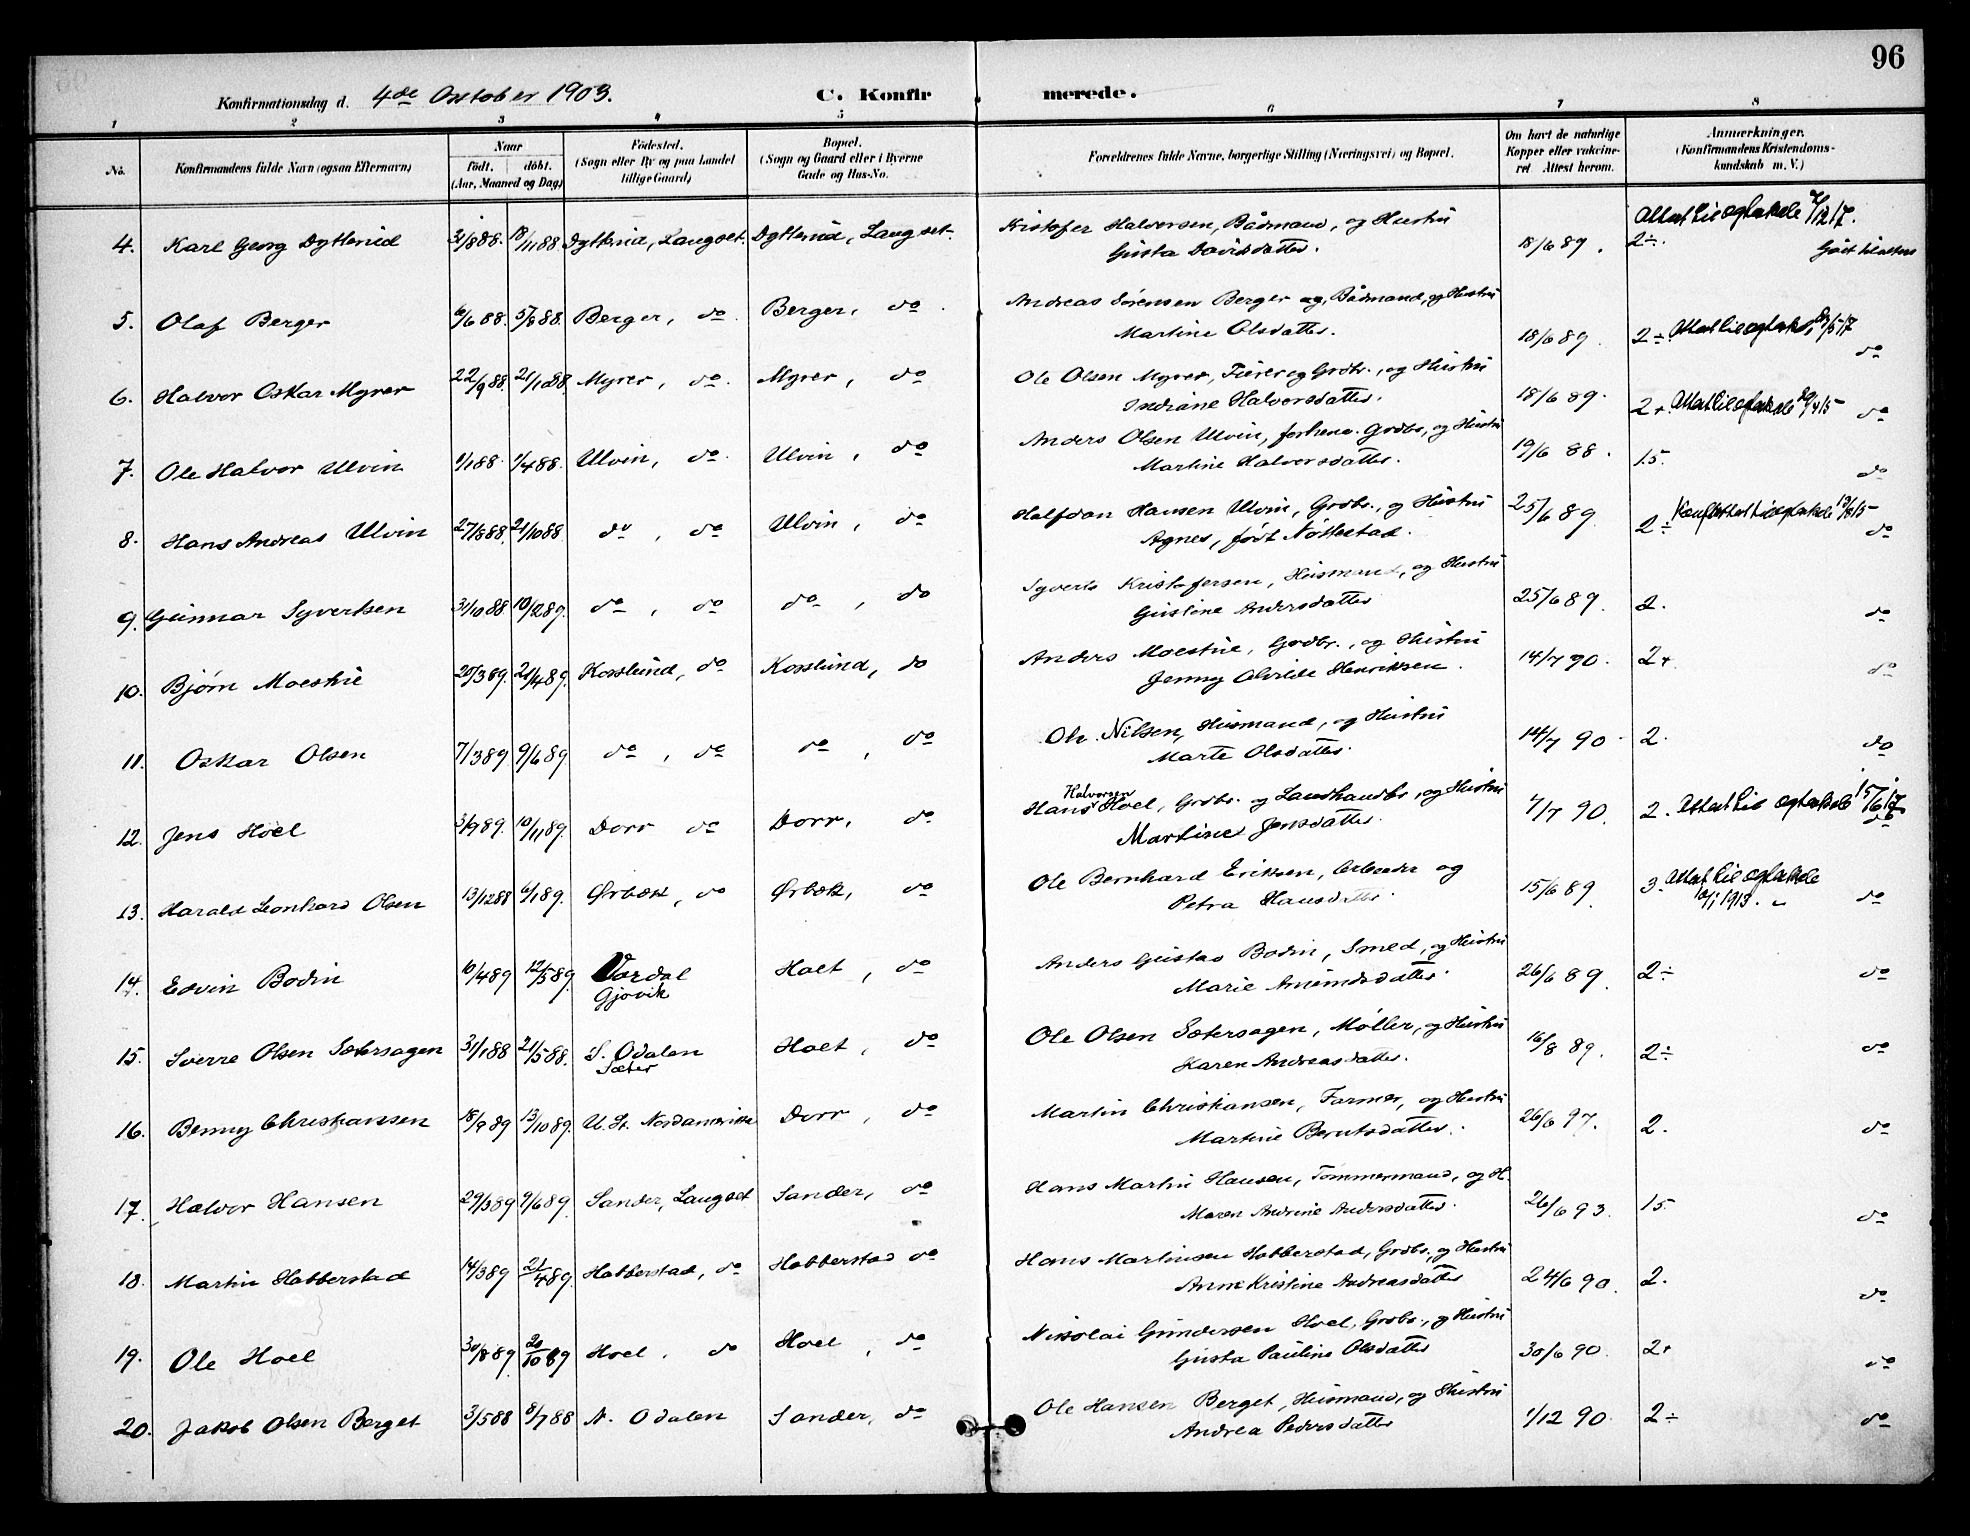 96
Konfirmationsdag d. 4de October 1903. C. Konfirmerede.
1 2 3 4 5 6 7 8
No. Konfirmandens fulde Navn (ogsaa Efternavn) Naar født. døbt. (Aar, Maaned og Dag) Fødested. (Sogn eller By og paa Landet tillige Gaard) Bopæl. (Sogn og Gaard eller i Byerne Gade og Hus-No. Forældrenes fulde Navne, borgerlige Stilling (Næringsvei) og Bopæl. Om havt de naturlige Kopper eller vaccineret Attest herom. Anmærkninger. (Konfirmandens Kristendomskundskab m. V.)
4. Karl Georg Dytterud 31/8 88. 18/11 88. Dytterud, Langset. Dytterud, Langset. Kristofer Halvorsen, Bådmand, og Hustru
Gusta Davidsdatter. 18/6 89. 2÷. Gået til alters
5. Olaf Berger 6/6 88. 5/8 88. Berger, do. Berger, do. Andreas Sørensen Berger, Bådmand, og Hustru
Martine Olsdatter. 18/6 89. 2÷ do
6. Halvor Oskar Myrer 22/9 88. 21/10 88. Myrer, do. Myrer, do Ole Olsen Myrer, Grdbr., og Hustru
Indiane Halvorsdatter. 18/6 89. 2+. do
7. Ole Halvor Ulvin 1/1 88. 1/4 88. Ulvin, do. Ulvin, do Anders Olsen Ulvin, forhenv. Grdbr., og Hustru
Martine Halvorsdatter. 19/6 88. 1.5. do
8. Hans Andreas Ulvin 27/8 88. 21/10 88. do, do Ulvin, do Halfdan Hansen Ulvin, Grdbr., og Hustru
Agnes, født Nøkkestad. 25/6 89 2÷ do
9. Gunnar Syvertsen 31/10 88 10/2 89. do, do do, do Syvert Kristofersen, Husmand, og Hustru
Gustine Andersdatter 25/6 89. 2. do
10. Bjørn Moestue 20/3 89. 21/4 89. Korslund, do Korslund, do Anders Moestue, Grdbr., og Hustru
Jenny Alvilde Henriksen. 14/7 90. 2+. do
11. Oskar Olsen 7/3 89 9/6 89 do, do do, do Ole Nilsen, Husmand, og Hustru
Marte Olsdatter. 14/7 90. 2. do
12. Jens Hoel 3/9 89. 10/11 89. Dorr do Dorr, do Hans Halvorsen Hoel, Grdbr. og Landhandlr., og Hustru
Martine Jensdatter. 7/7 90. 2. do
13. Harald Leonhard Olsen 13/12 88 6/1 89. Ørbæk, do Ørbæk, do Ole Bernhard Eriksen, Arbeider og
Petra Hansdatter. 15/6 89. 3. 1913. do
14. Edvin Bodin 10/4 89 12/5 89. Vardal Gjøvik Holt, do Anders Gustav Bodin, Smed, og Hustru
Marie Amundsdatter. 26/6 89. 2÷ do
15. Sverre Olsen Sætersagen 31/1 88 21/5 88. S. Odalen Sæter Holt, do Ole Olsen Sætersagen, Møller, og Hustru
Karen Andreasdatter. 16/8 89. 2÷ do
16. Benny Christiansen 18/9 89 13/10 89. U. St. Nordamerika Dorr, do Martin Christiansen, Farmer, og Hustru
Martine Berntsdatter. 26/6 97. 2. do
17. Halvor Hansen 29/3 89 9/6 89. Sander, Langset Sander, do Hans Martin Hansen, Tømmermand, og H.
Maren Andrine Andersdatter. 26/6 93. 1.5. do
18. Martin Habberstad 14/3 89 21/4 89. Habberstad, do Habberstad do Hans Martinsen Habberstad, Grdbr., og Hustru
Anne Kristine Andreasdatter 24/6 90. 2. do
19. Ole Hoel 30/8 89. 20/10 89 Hoel, do Hoel, do Nikolai Gundersen Hoel, Grdbr., og Hustru
Gusta Pauline Olsdatter 30/6 90. 2+ do
20. Jakob Olsen Berget 3/5 88 8/7 88 N. Odalen Sander, do Ole Hansen Berget, Husmand, og Hustru
Andrea Pedersdatter 1/12 90. 2÷ do